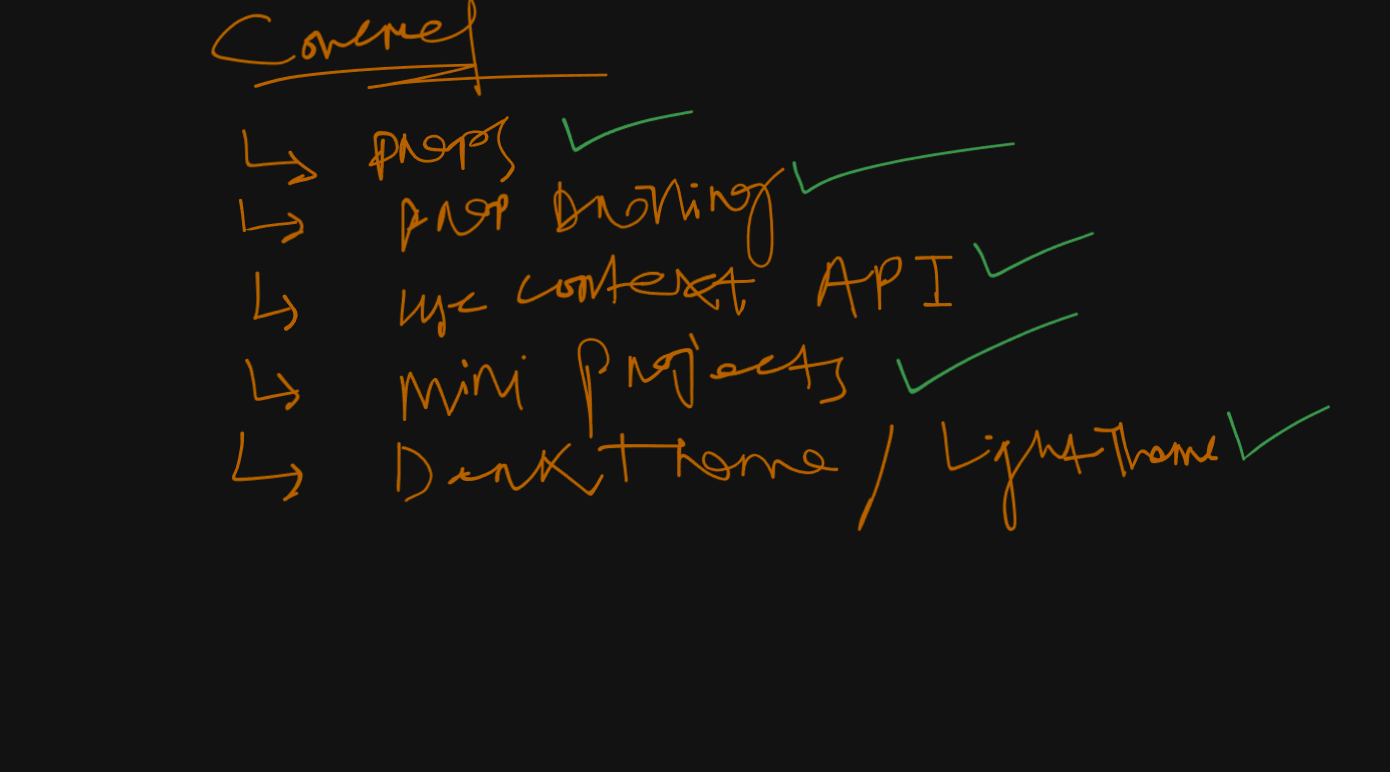 Covered
↳ props ✓
↳ prop Drilling ✓
↳ use context API ✓
↳ mini projects ✓
↳ Dark Theme / Light Theme ✓